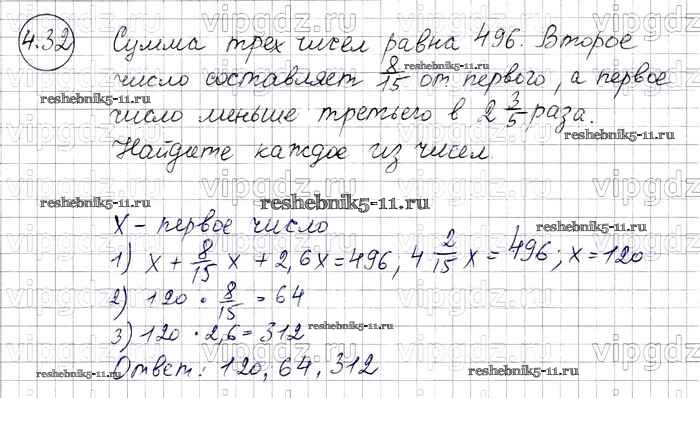 4.32 Сумма трех чисел равна 496. Второе
число составляет 8/15 от первого, а первое
reshebnik5-11.ru
число меньше третьего в 2 3/5 раза.
reshebnik5-11.ru
Найдите каждое из чисел.
reshebnik5-11.ru
X - первое число
reshebnik5-11.ru
1) x + 8/15 x + 2,6x = 496, 4 2/15 x = 496; x = 120
2) 120 · 8/15 = 64
3) 120 · 2,6 = 312
reshebnik5-11.ru
Ответ: 120, 64, 312
reshebnik5-11.ru
reshebnik5-11.ru
vipgdz.ru